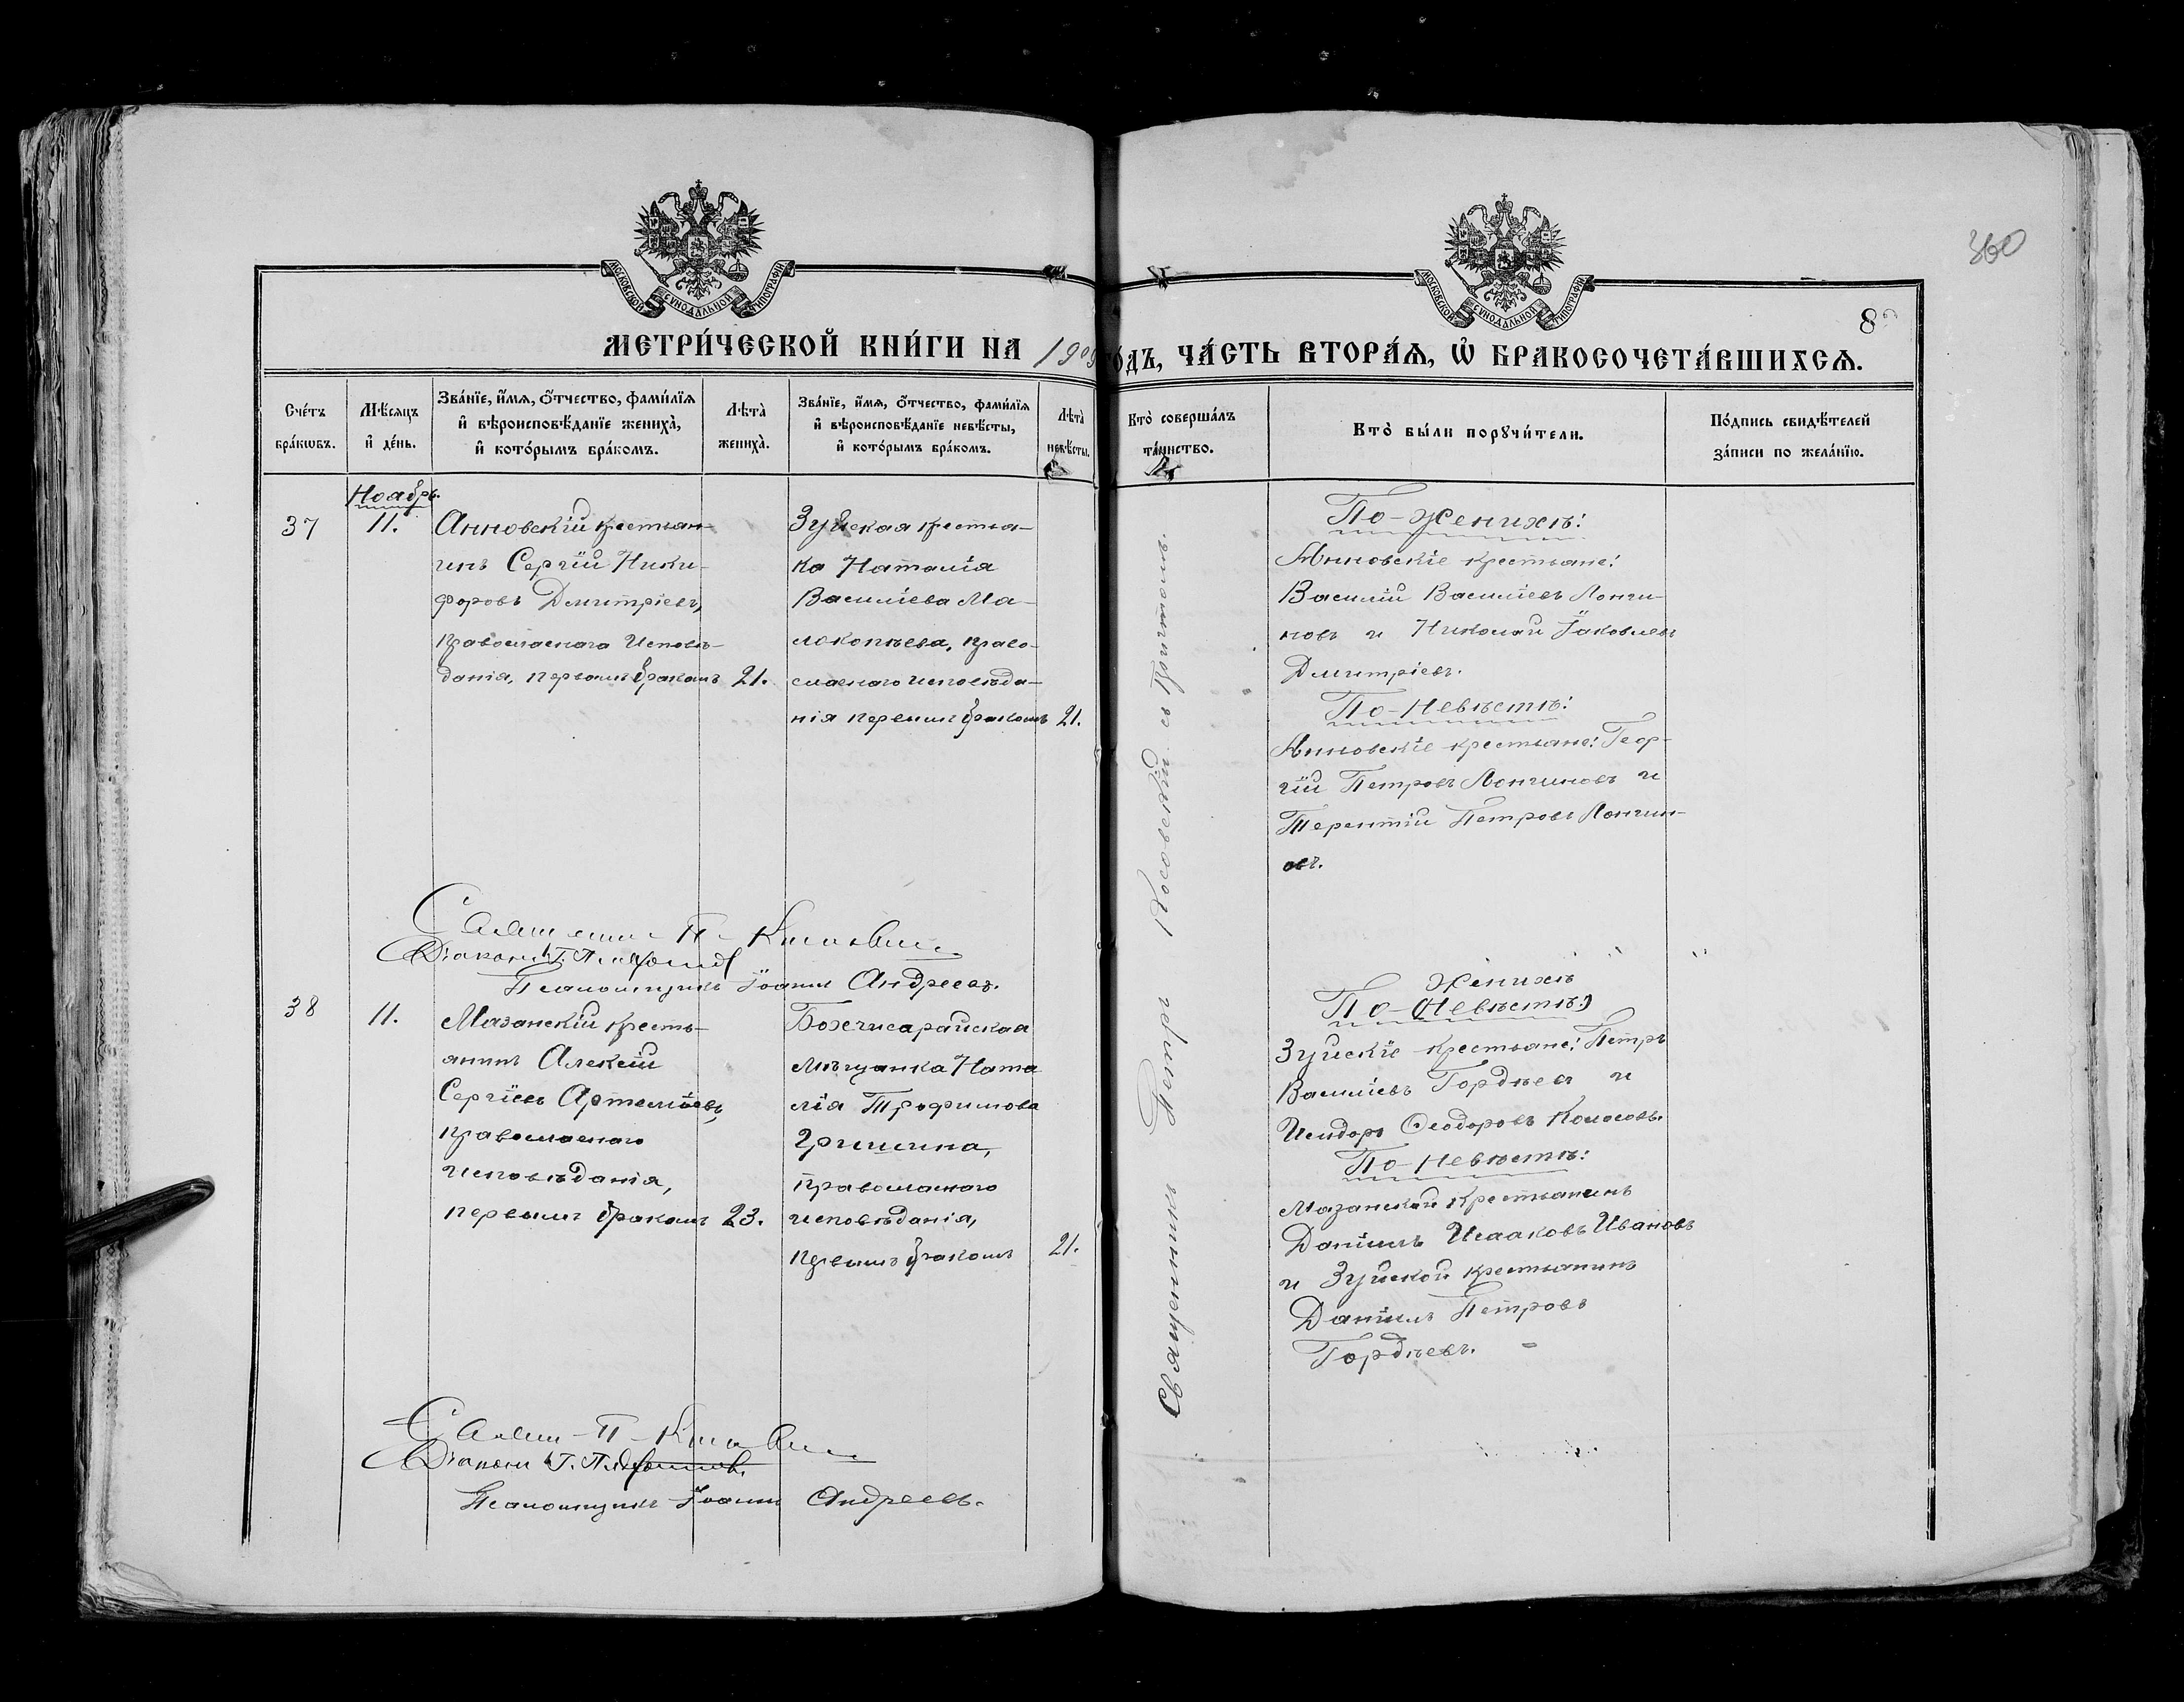 360
МОСКОВСКОЙ СѴНОДАЛЬНОЙ ТИПОГРАФІИ
МОСКОВСКОЙ СѴНОДАЛЬНОЙ ТИПОГРАФІИ
8
МЕТРИ́ЧЕСКОЙ КНИ́ГИ НА 1909 ГО́ДЪ, ЧА́СТЬ ВТОРА́Ѧ, Ѽ БРАКОСОЧЕТА́ВШИХСѦ.
Сче́тъ бра́кѡвъ.
Мѣ́сѧцъ и҆ де́нь.
Зва́нїе, и҆́мѧ, ѻ҆́тчество, фами́лїѧ и҆ вѣроисповѣ́данїе жениха̀, и҆ кото́рымъ бра́комъ.
Лѣта̀ жениха̀.
Зва́нїе, и҆́мѧ, ѻ҆́тчество, фами́лїѧ и҆ вѣроисповѣ́данїе невѣ́сты, и҆ кото́рымъ бра́комъ.
Лѣта̀ невѣ́сты.
Кто̀ соверша́лъ та́инство.
Кто̀ бы́ли порꙋчи́тели.
По́дпись свидѣ́телей за́писи по жела́нїю.
Ноябрь.
37
11.
Анновскій крестьян-
инъ Сергій Ники-
форовъ Дмитріевъ,
православнаго исповѣ-
данія, первымъ бракомъ
21.
Зуйская крестья-
ка Наталія
Васильева Ма-
локопѣева, право-
славного исповѣда-
нія первымъ бракомъ
21.
Священникъ Петръ Косовскій съ Причтомъ.
По-Женихѣ:
Анновскіе крестьяне:
Василій Васильевъ Лонги-
новъ и Николай Іаковлевъ
Дмитріевъ.
По-Невѣстѣ:
Анновскіе крестьяне: Геор-
гій Петровъ Лонгиновъ и
Терентій Петровъ Лонгин-
овъ.
Діаконъ
Псаломщикъ Іоаннъ Андреевъ.
38
11.
Мазанскій кресть-
янинъ Алексій
Сергіевъ Артеміевъ,
православного
исповѣданія,
первымъ бракомъ
23.
Бахчисарайская
мѣщанка Ната
лія Трофимова
Гришина,
православного
исповѣданія,
первымъ бракомъ
21.
Женихѣ
По-(Невѣстѣ:)
Зуйскіе крестьяне: Петръ
Васильевъ Гордѣевъ и
Исидоръ Ѳеодоровъ Колосовъ.
По-Невѣстѣ:
Мазанской крестьянинъ
Даніилъ Исааковъ Ивановъ
и Зуйской крестьянинъ
Даніилъ Петровъ
Гордѣевъ.
Діаконъ
Псаломщикъ Іоаннъ Андреевъ.